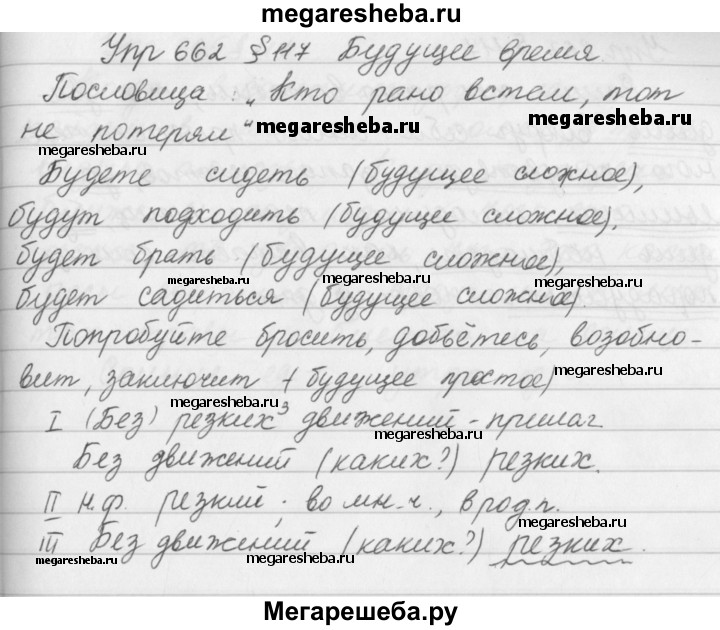 megaresheba.ru
Упр 662 § 117 Будущее время.
Пословица: „Кто рано встал, тот
megaresheba.ru
не потерял“ megaresheba.ru
megaresheba.ru
Будете сидеть (будущее сложное),
будут подходить (будущее сложное),
будет брать (будущее сложное),
megaresheba.ru megaresheba.ru
будет садиться (будущее сложное)
Попробуйте бросить, добьётесь, возобно-
megaresheba.ru
вит, заключит (будущее простое)
megaresheba.ru
I (Без) резких³ движений - прилаг.
megaresheba.ru
Без движений (каких?) резких.
II н.ф. резкий; во мн.ч., в род.п.
megaresheba.ru
III Без движений (каких?) резких.
megaresheba.ru megaresheba.ru
Мегарешеба.ру